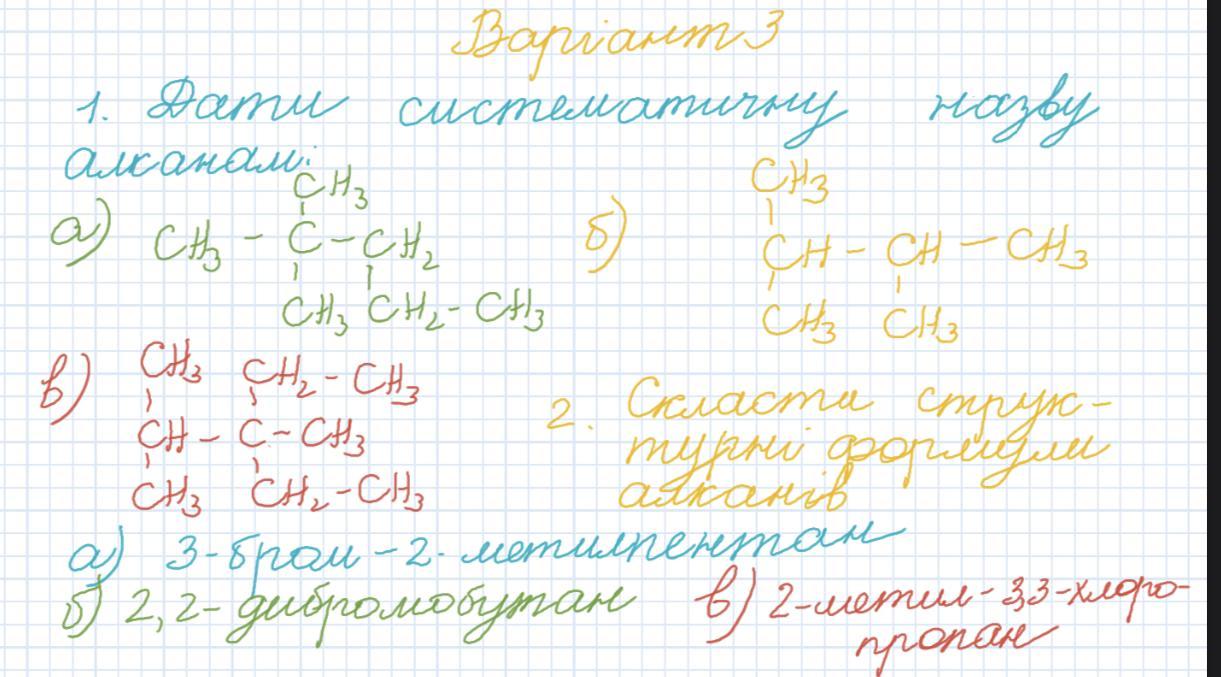 Варіант 3
1. Дати систематичну назву
алканам:
а) CH3 - C - CH2
CH3
CH3 CH2 - CH3
б) CH3
CH - CH - CH3
CH3 CH3
в) CH3 CH2 - CH3
CH - C - CH3
CH3 CH2 - CH3
2. Скласти струк-
турні формули
алканів
а) 3-бром-2-метилпентан
б) 2,2-дибромобутан
в) 2-метил-3,3-хлоро-
пропан